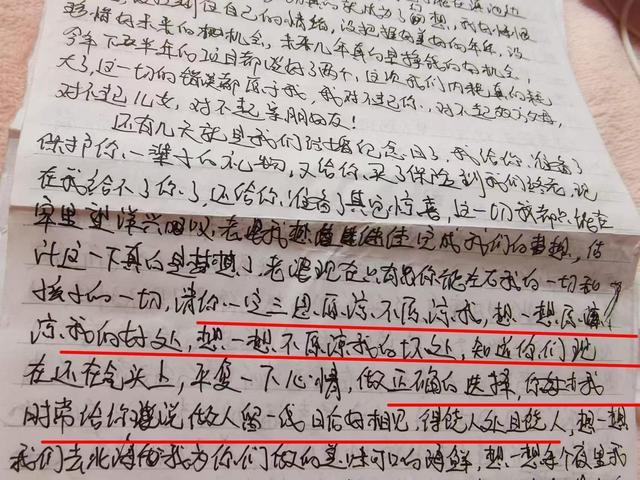 到位自己的情绪,没把握好美好的年华,没
珍惜好未来的机会,未来几年真的是挣钱的好机会,
今年下半年的项目都谈好了两个,这次我们内耗真的耗
大了,这一切的错误都归于我,我对不起你,对不起双方父母,
对不起儿女,对不起亲朋好友!
还有几天就是我们结婚纪念日了,我给你准备了
保护你一辈子的礼物,又给你买了保险到我们终老,现
在我给不了你了,还给你准备了其它惊喜,这一切我都只能在
家里深深叹,老婆我想继续完成我们的梦想,估
计这一下真的是梦想了,老婆现在只有你能左右我的一切和
孩子的一切,请你一定三思原谅不原谅我,想一想原谅
谅我的好处,想一想不原谅我的坏处,知道你们现
在还在气头上,平复一下心情,做正确的选择,你我
时常给你说做人留一线日后好相见,得饶人处且饶人,想一想
我们去北海我为你们做的美味可口的海鲜,想一想每个夜里我